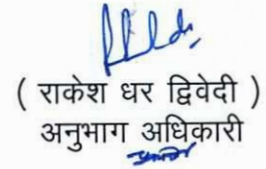 ( राकेश धर द्विवेदी )
अनुभाग अधिकारी